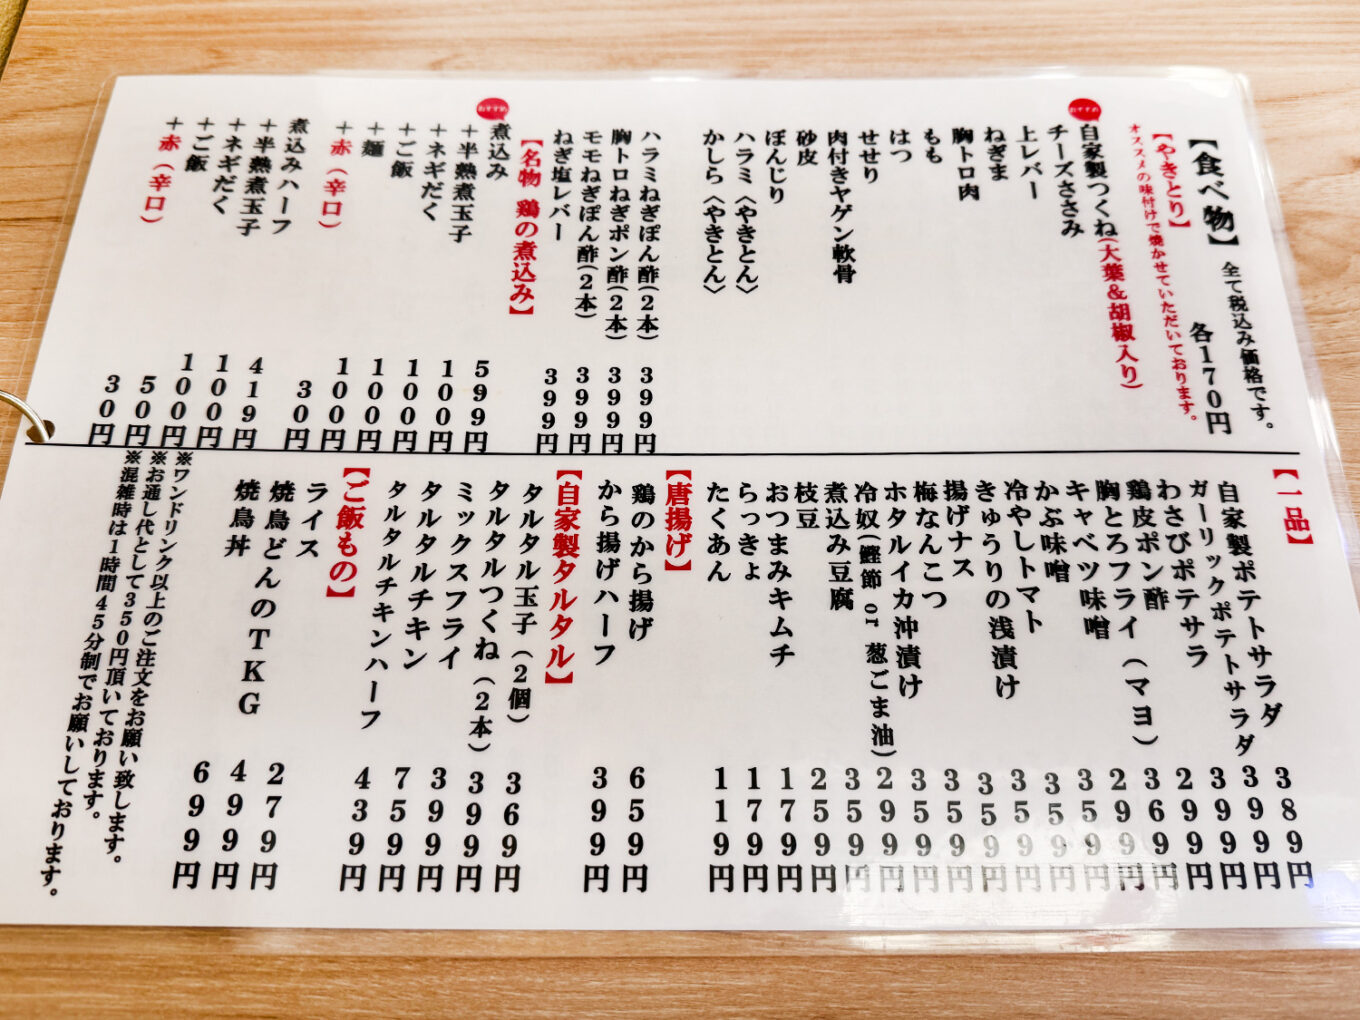 【食べ物】 全て税込み価格です。
【やきとり】 各170円
オススメの味付けで焼かせていただいております。
おすすめ
自家製つくね(大葉&胡椒入り)
チーズささみ
上レバー
ねぎま
胸トロ肉
もも
はつ
せせり
肉付きヤゲン軟骨
砂皮
ぼんじり
ハラミ〈やきとん〉
かしら〈やきとん〉
ハラミねぎぽん酢(2本) 399円
胸トロねぎポン酢(2本) 399円
モモねぎぽん酢(2本) 399円
ねぎ塩レバー 399円
【名物 鶏の煮込み】
おすすめ
煮込み 599円
+半熟煮玉子 100円
+ネギだく 100円
+ご飯 100円
+麺 100円
+赤(辛口) 30円
煮込みハーフ 419円
+半熟煮玉子 100円
+ネギだく 100円
+ご飯 50円
+赤(辛口) 30円
【一品】
自家製ポテトサラダ 389円
ガーリックポテトサラダ 399円
わさびポテサラ 399円
鶏皮ポン酢 299円
胸とろフライ(マヨ) 369円
キャベツ味噌 299円
かぶ味噌 359円
冷やしトマト 359円
きゅうりの浅漬け 359円
揚げナス 359円
梅なんこつ 359円
ホタルイカ沖漬け 359円
冷奴(鰹節 or 葱ごま油) 299円
煮込み豆腐 359円
枝豆 259円
おつまみキムチ 179円
らっきょ 179円
たくあん 119円
【唐揚げ】
鶏のから揚げ 659円
から揚げハーフ 399円
【自家製タルタル】
タルタル玉子(2個) 369円
タルタルつくね(2本) 399円
ミックスフライ 399円
タルタルチキン 759円
タルタルチキンハーフ 439円
【ご飯もの】
ライス 279円
焼鳥どんのTKG 499円
焼鳥丼 699円
※ワンドリンク以上のご注文をお願い致します。
※お通し代として350円頂いております。
※混雑時は1時間45分制でお願いしております。